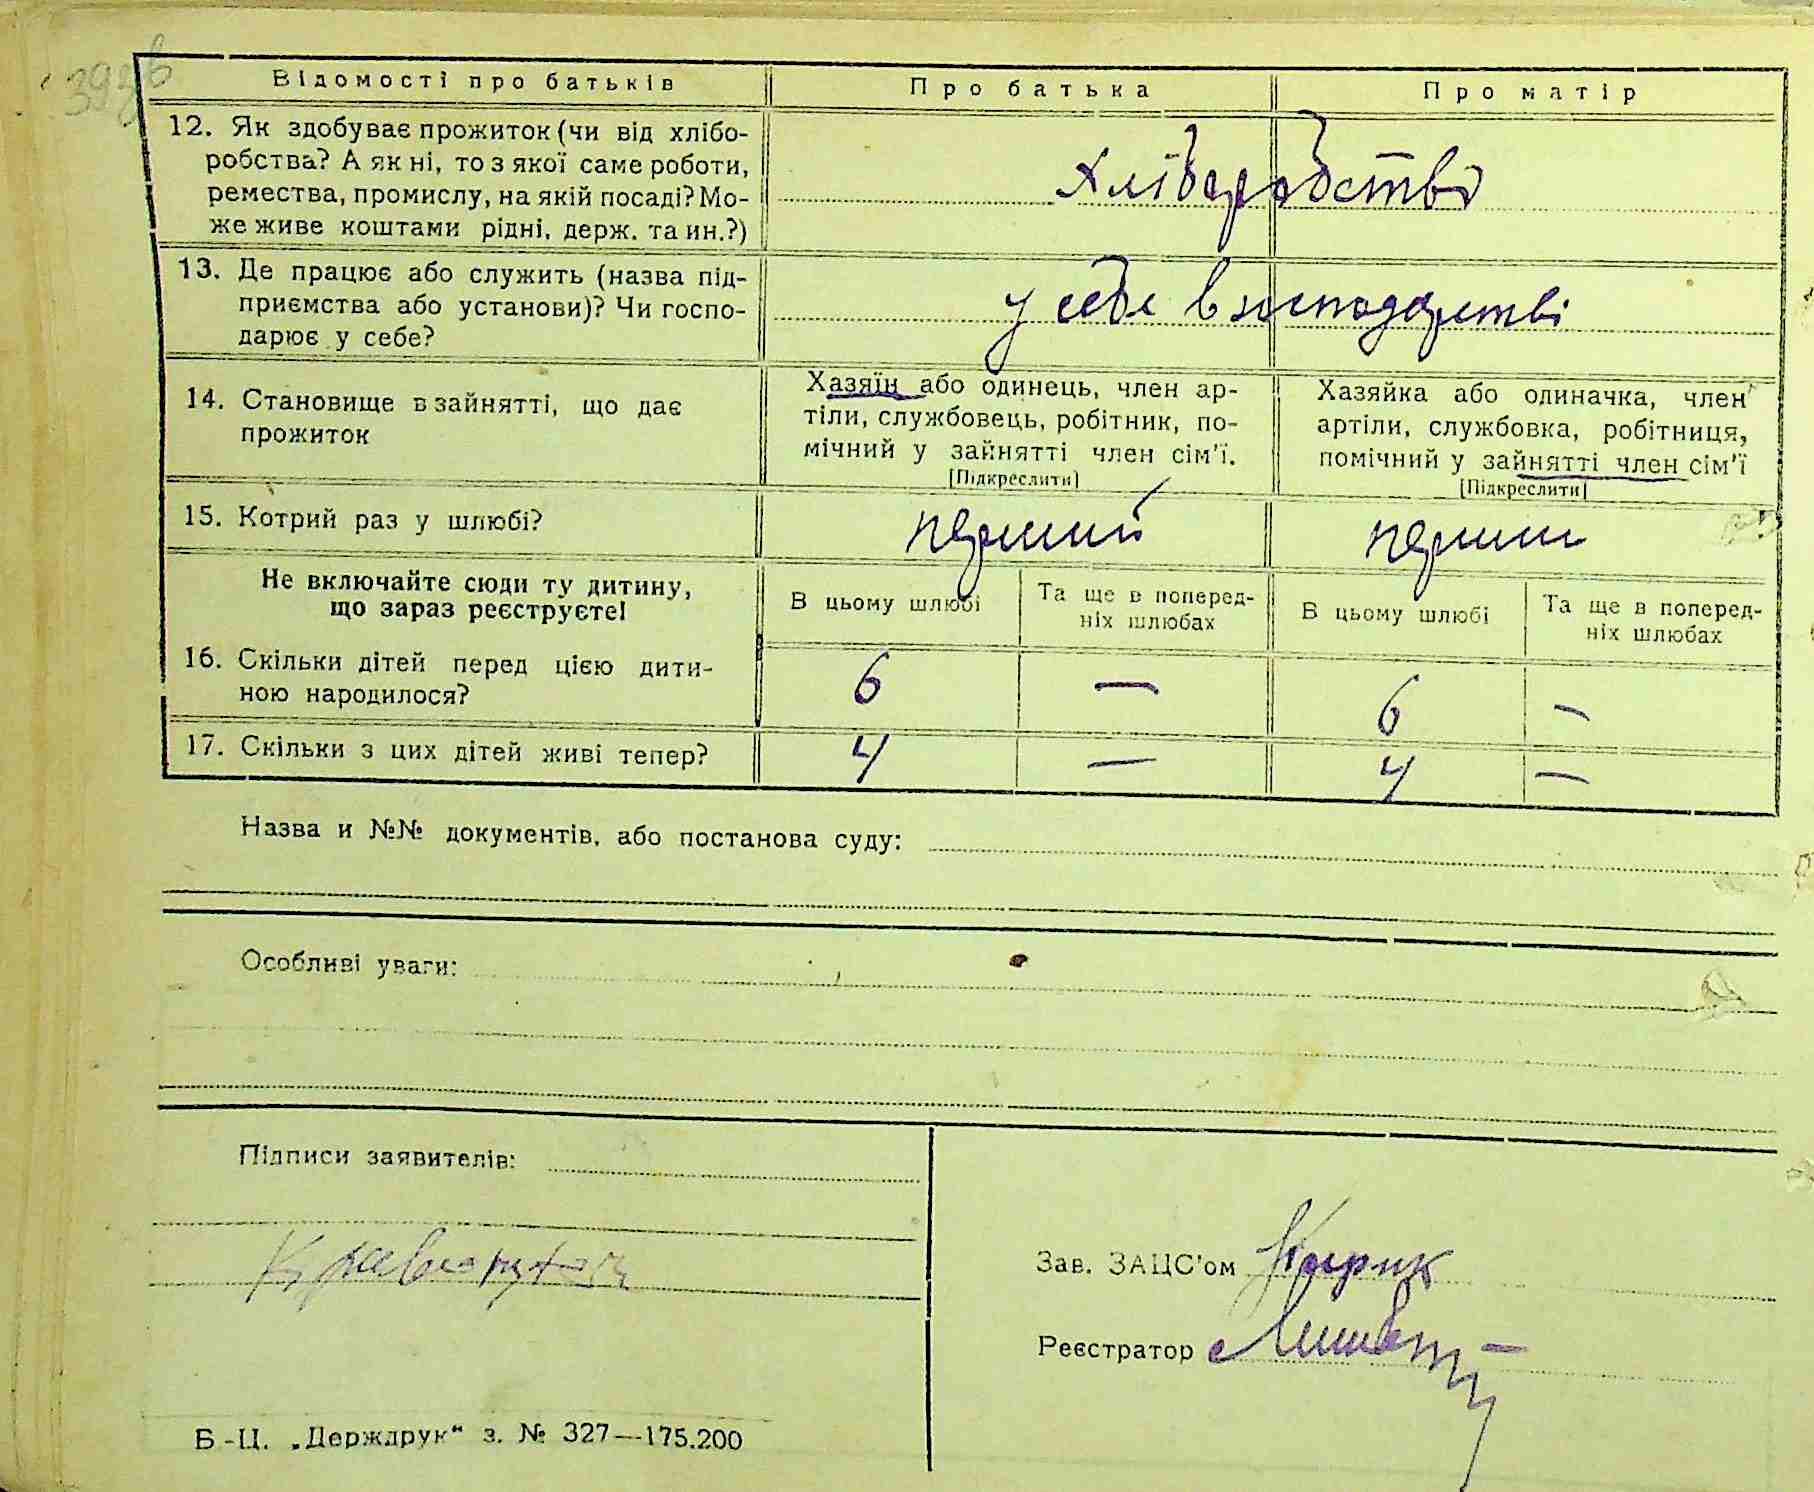 Відомості про батьків Про батька Про матір
12. Як здобуває прожиток (чи від хлібо-
робства? А як ні, то з якої саме роботи,
ремества, промислу, на якій посаді? Мо-
же живе коштами рідні, держ. та ин.?)
Хліборобство
13. Де працює або служить (назва під-
приємства або установи)? Чи госпо-
дарює у себе?
у себе в господарстві
14. Становище в зайнятті, що дає
прожиток
Хазяїн або одинець, член ар-
тіли, службовець, робітник, по-
мічний у зайнятті член сім'ї.
[Підкреслити]
Хазяйка або одиначка, член
артіли, службовка, робітниця,
помічний у зайнятті член сім'ї
[Підкреслити]
15. Котрий раз у шлюбі? перший перший
Не включайте сюди ту дитину,
що зараз реєструєте!
В цьому шлюбі
Та ще в поперед-
ніх шлюбах
В цьому шлюбі
Та ще в поперед-
ніх шлюбах
16. Скільки дітей перед цією дити-
ною народилося?
6 — 6 —
17. Скільки з цих дітей живі тепер? 4 — 4 —
Назва и №№ документів, або постанова суду:
Особливі уваги:
Підписи заявителів:
Зав. ЗАЦС'ом
Реєстратор
Б-Ц. „Держдрук“ з. № 327—175.200